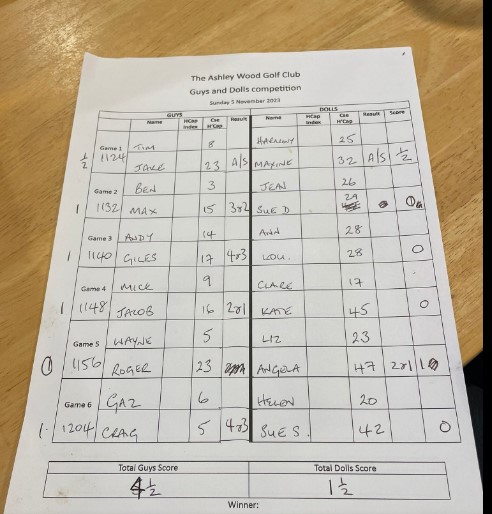 The Ashley Wood Golf Club
Guys and Dolls competition
Sunday 5 November 2023
GUYS DOLLS
Name HCap Index Cse H'Cap Result Name HCap Index Cse H'Cap Result Score
Game 1 TIM 8 HARMONY 25
½ 1124 JAKE 23 A/S MAXINE 32 A/S ½
Game 2 BEN 3 JEAN 26
1 1132 MAX 15 3&2 SUE D 29
Game 3 ANDY 14 ANN 28
1 1140 GILES 17 4&3 LOU. 28 0
Game 4 MICK 9 CLARE 17
1 1148 JACOB 16 2&1 KATE 45 0
Game 5 WAYNE 5 LIZ 23
0 1156 ROGER 23 ANGELA 47 2&1 1
Game 6 GAZ 6 HELEN 20
1. 1204 CRAG 5 4&3 SUE S. 42 0
Total Guys Score Total Dolls Score
4½ 1½
Winner: